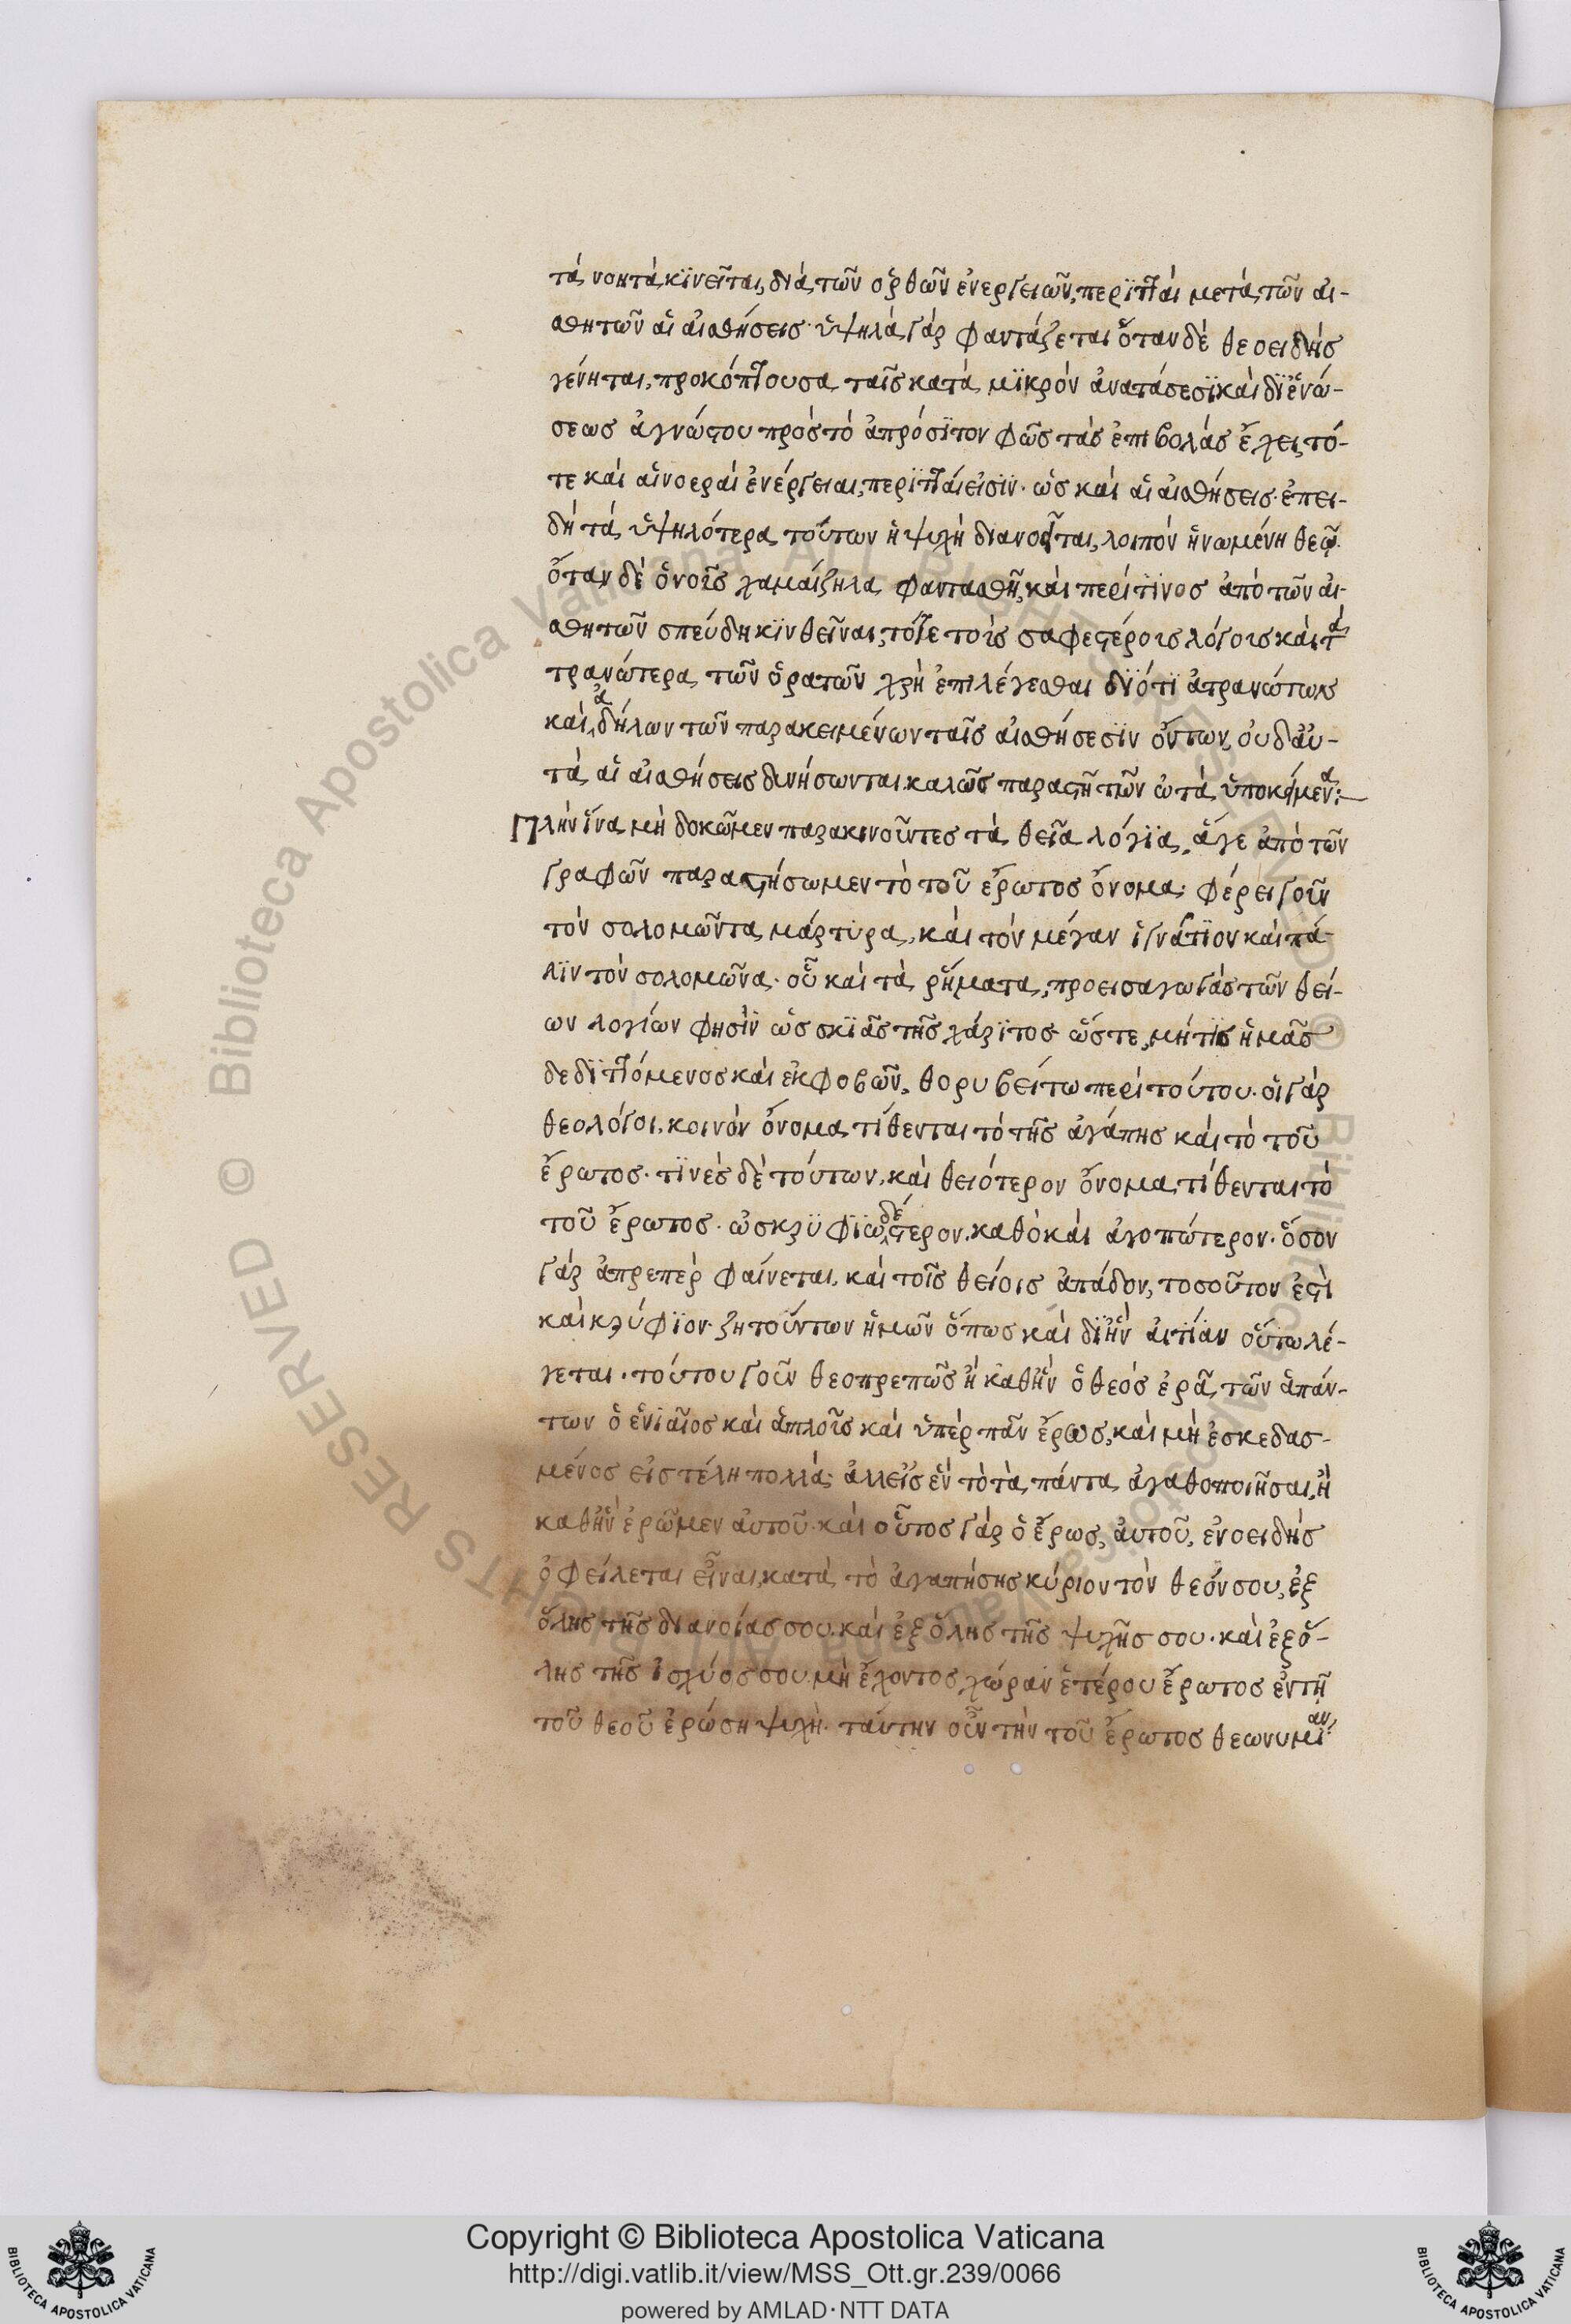 τὰ νοητὰ κϊνεῖται, διὰ τῶν ὀρθῶν ἐνεργειῶν, περϊτταὶ μετὰ τῶν αἰ-
σθητῶν αἱ αἰσθήσεις· ὑψηλὰ γὰρ φαντάζεται ὅταν δὲ θεοειδὴς
γένηται, προκόπτουσα ταῖς κατὰ μϊκρὸν ἀνατάσεσϊ καὶ δϊ ἑνώ-
σεως ἀγνώστου πρὸς τὸ ἀπρόσϊτον φῶς τὰς ἐπιβολὰς ἔχει, τό-
τε καὶ αἱ νοεραὶ ἐνέργειαι, περϊτταί εἰσϊν· ὡς καὶ αἱ αἰσθήσεις· ἐπει-
δὴ τὰ ὑψηλότερα τούτων ἡ ψυχὴ διανοεῖται, λοιπὸν ἡνωμένη θεῷ·
ὅταν δὲ ὁ νοῖς χαμαίζηλα φαντασθῇ, καὶ περί τϊνος ἀπὸ τῶν αἰ-
σθητῶν σπεύδη κϊνθεῖναι, τότε τοῖς σαφεστέροις λόγοις καὶ τὰ
τρανώτερα τῶν ὁρατῶν χρὴ ἐπιλέγεσθαι διότϊ ἀτρανώτων
καὶ ἀδήλων τῶν παρακειμένων ταῖς αἰσθήσεσϊν ὄντων, οὐδ' αὐ-
τὰ αἱ αἰσθήσεις δυνήσωνται καλῶς παραστῆ τῶν ὠτὰ ὑποκείμενα:
Πλὴν ἵνα μὴ δοκῶμεν παρακινοῦντες τὰ θεῖα λόγϊα, ἄγε ἀπὸ τῶν
γραφῶν παραστήσωμεν τὸ τοῦ ἔρωτος ὄνομα· φέρει γοῦν
τὸν σολομῶντα μάρτυρα, καὶ τὸν μέγαν ἰγνάτϊον καὶ πά-
λϊν τὸν σολομῶνα· οὗ καὶ τὰ ῥήματα, προεισαγωγὰς τῶν θεί-
ων λογίων φησὶν ὡς σκϊᾶς τῆς χάρϊτος ὥστε, μή τϊς ἡμᾶς
δεδϊττόμενος καὶ ἐκφοβῶν, θορυβείτω περὶ τούτου· οἱ γὰρ
θεολόγοι, κοινὸν ὄνομα τίθενται τὸ τῆς ἀγάπης καὶ τὸ τοῦ
ἔρωτος· τϊνὲς δὲ τούτων, καὶ θειότερον ὄνομα τίθενται τὸ
τοῦ ἔρωτος· ὡς κρϋφϊωδέστερον, καθὸ καὶ ἀγοπώτερον· ὅσον
γὰρ ἀπρεπὲρ φαίνεται, καὶ τοῖς θείοις ἀπάδον, τοσοῦτον ἐστὶ
καὶ κρύφϊον· ζητούντων ἡμῶν ὅπως καὶ δϊ ἣν αἰτίαν οὕτω λέ-
γεται· τούτου γοῦν θεοπρεπῶς ἢ καθ' ἣν ὁ θεὸς ἐρᾶ τῶν ἁπάν-
των ὁ ἑνιαῖος καὶ ἁπλοῖς καὶ ὑπὲρ πᾶν ἔρως, καὶ μὴ ἐσκεδασ-
μένος εἰς τέλη πολλὰ· ἀλλ' εἰς ἓν τὸ τὰ πάντα ἀγαθοποιῆσαι, ἢ
καθ' ἣν ἐρῶμεν αὐτοῦ· καὶ οὗτος γὰρ ὁ ἔρως, αὐτοῦ, ἑνοειδὴς
ὀφείλεται εἶναι, κατὰ τὸ ἀγαπήσης κύριον τὸν θεόν σου, ἐξ
ὅλης τῆς διανοίας σου· καὶ ἐξ ὅλης τῆς ψυχῆς σου· καὶ ἐξ ὅ-
λης τῆς ἰσχύος σου· μὴ ἔχοντος χώραν ἑτέρου ἔρωτος ἐν τῇ
τοῦ θεοῦ ἐρώση ψυχὴ· ταύτην οὖν τὴν τοῦ ἔρωτος θεωνυμίαν
Copyright © Biblioteca Apostolica Vaticana
http://digi.vatlib.it/view/MSS_Ott.gr.239/0066
powered by AMLAD·NTT DATA